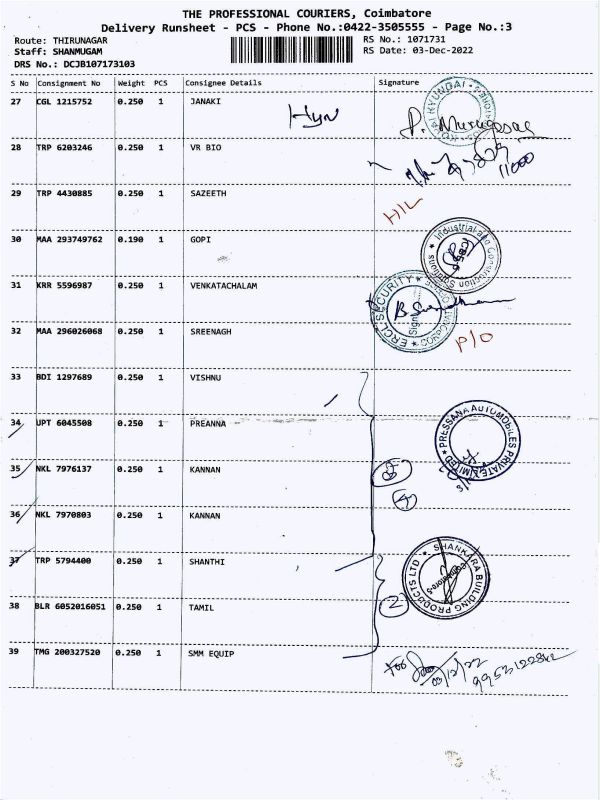 THE PROFESSIONAL COURIERS, Coimbatore
Delivery Runsheet - PCS - Phone No.:0422-3505555 - Page No.:3
Route: THIRUNAGAR
RS No.: 1071731
Staff: SHANMUGAM
RS Date: 03-Dec-2022
DRS No.: DCJB107173103
S No Consignment No Weight PCS Consignee Details Signature
27 CGL 1215752 0.250 1 JANAKI
Hyn
P. Murugesan
28 TRP 6203246 0.250 1 VR BIO
11000
29 TRP 4430885 0.250 1 SAZEETH
H/L
30 MAA 293749762 0.190 1 GOPI
Industrial and Construction Solutions
31 KRR 5596987 0.250 1 VENKATACHALAM
SECURITY
32 MAA 296026068 0.250 1 SREENAGH
P/O
33 BDI 1297689 0.250 1 VISHNU
34 UPT 6045508 0.250 1 PREANNA
PRESSANA AUTOMOBILES PRIVATE LIMITED
35 NKL 7976137 0.250 1 KANNAN
4
36 NKL 7970803 0.250 1 KANNAN
37 TRP 5794400 0.250 1 SHANTHI
SHANKARA BUILDING PRODUCTS LTD
38 BLR 6052016051 0.250 1 TAMIL
2
39 TMG 200327520 0.250 1 SMM EQUIP
for
03/12/22